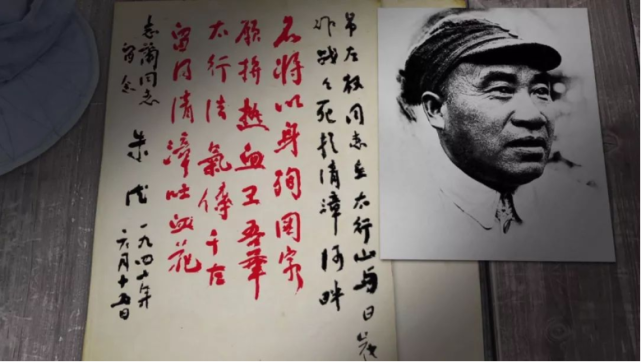 吊左权同志在太行山与日寇
作战々死於清漳河畔
名將以身殉国家
願拚热血卫吾華
太行浩氣傳千古
留得清漳吐血花
志蘭同志
留念
朱德
一九四二年
六月十五日